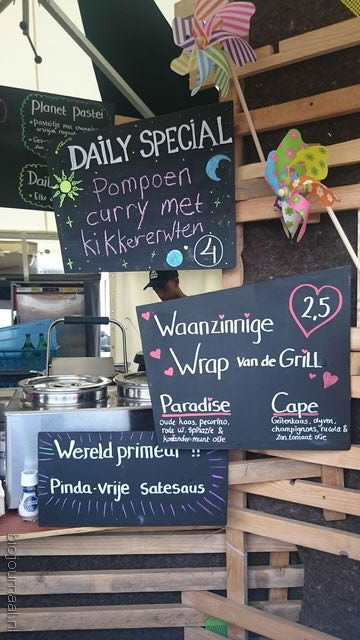 Planet Pastei
Pasteitje met
DAILY SPECIAL
Pompoen
curry met
kikkererwten
4
Waanzinnige
2,5
Wrap van de GRiLL
Paradise
oude kaas, pecorino,
rode ui, spinazie &
koriander-munt olie
Cape
Geitenkaas, olijven,
champignons, rucola &
zon.tomaat olie
Wereld primeur !!
Pinda-vrije Satesaus
biojournaal.nl